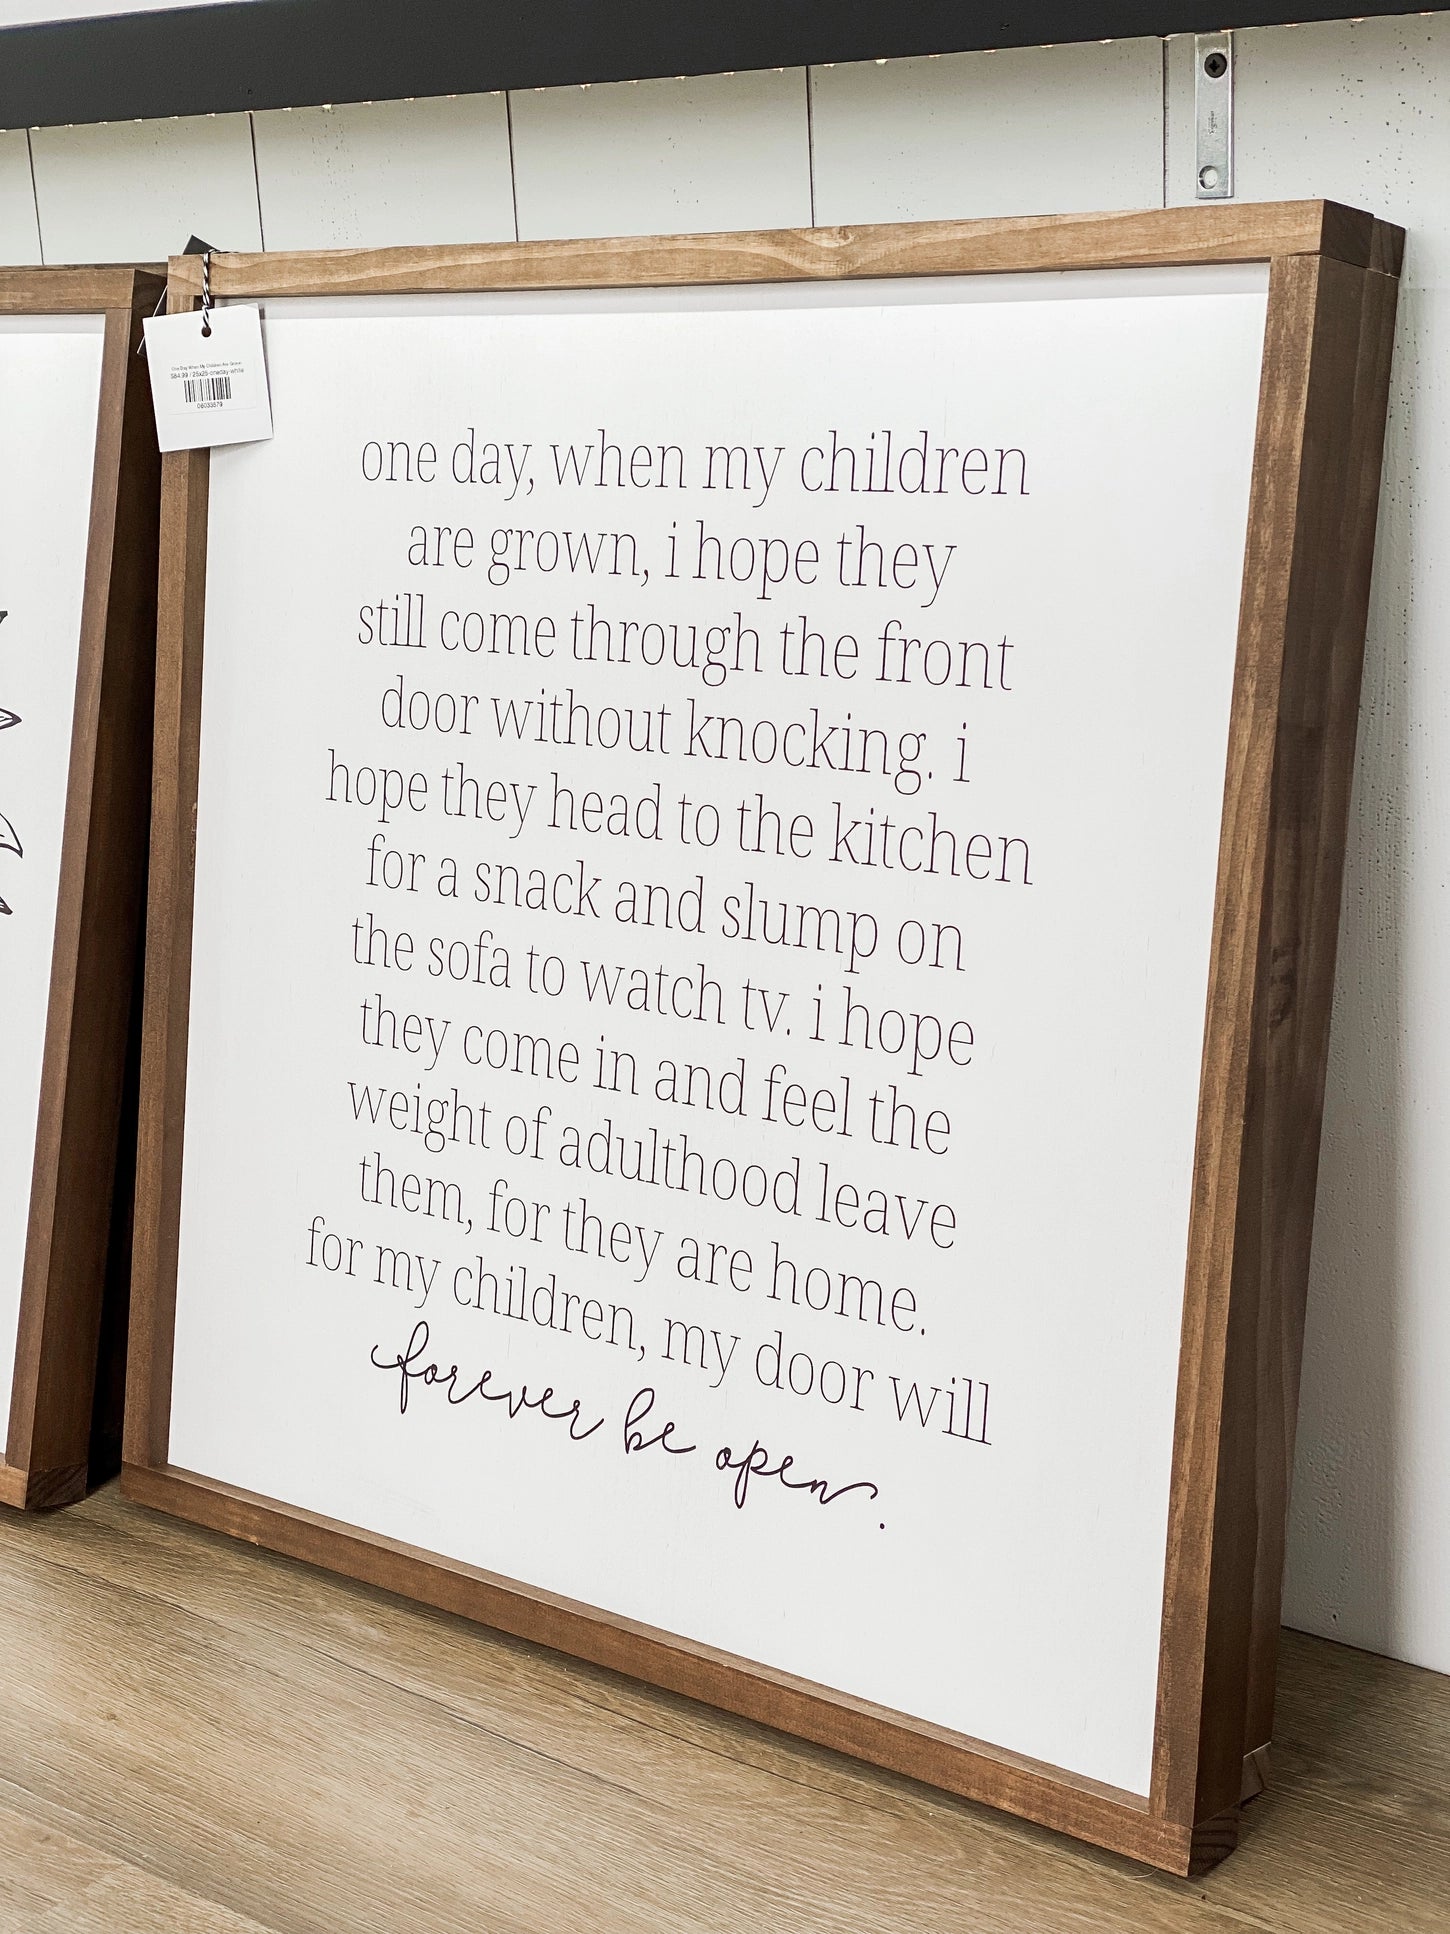 One Day When My Children Are Grown
$84.99 / 25x25-oneday-white
08033579
one day, when my children
are grown, i hope they
still come through the front
door without knocking. i
hope they head to the kitchen
for a snack and slump on
the sofa to watch tv. i hope
they come in and feel the
weight of adulthood leave
them, for they are home.
for my children, my door will
forever be open.